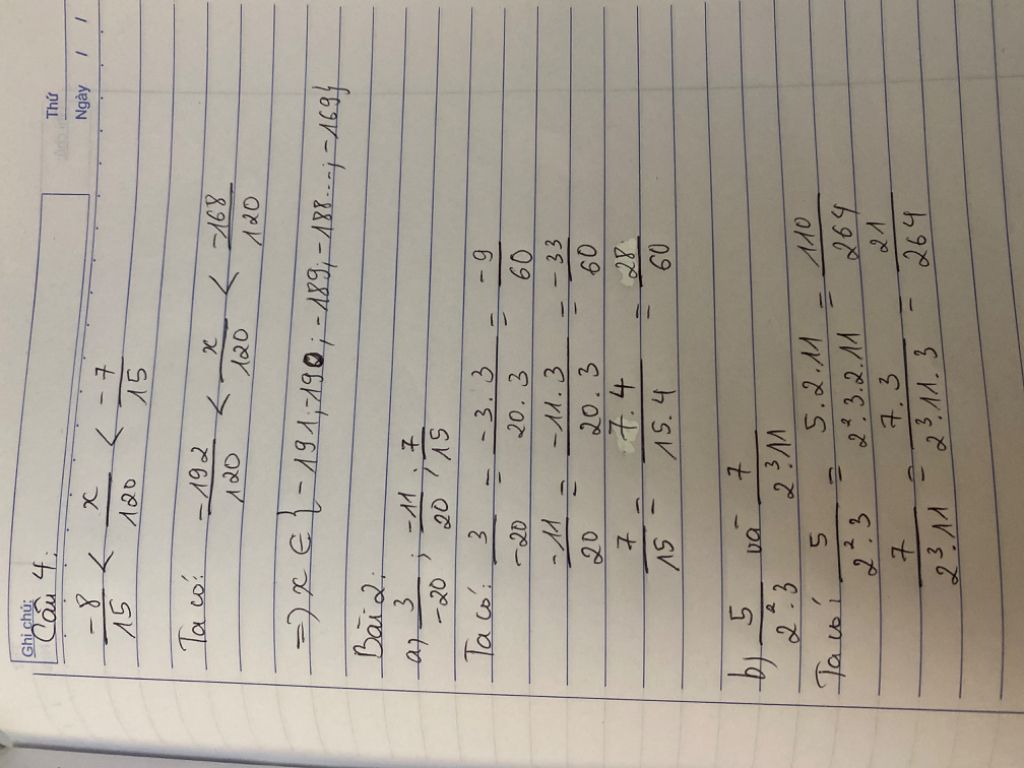 Ghi chú:
Thứ
Ngày / /
Câu 4:
-8/15 < x/120 < -7/15
Ta có: -192/120 < x/120 < -168/120
=> x ∈ {-191;-190;-189;-188...;-169}
Bài 2:
a) 3/-20 ; -11/20 ; 7/15
Ta có: 3/-20 = -3.3/20.3 = -9/60
-11/20 = -11.3/20.3 = -33/60
7/15 = 7.4/15.4 = 28/60
b) 5/2².3 và 7/2³.11
Ta có: 5/2².3 = 5.2.11/2².3.2.11 = 110/264
7/2³.11 = 7.3/2³.11.3 = 21/264